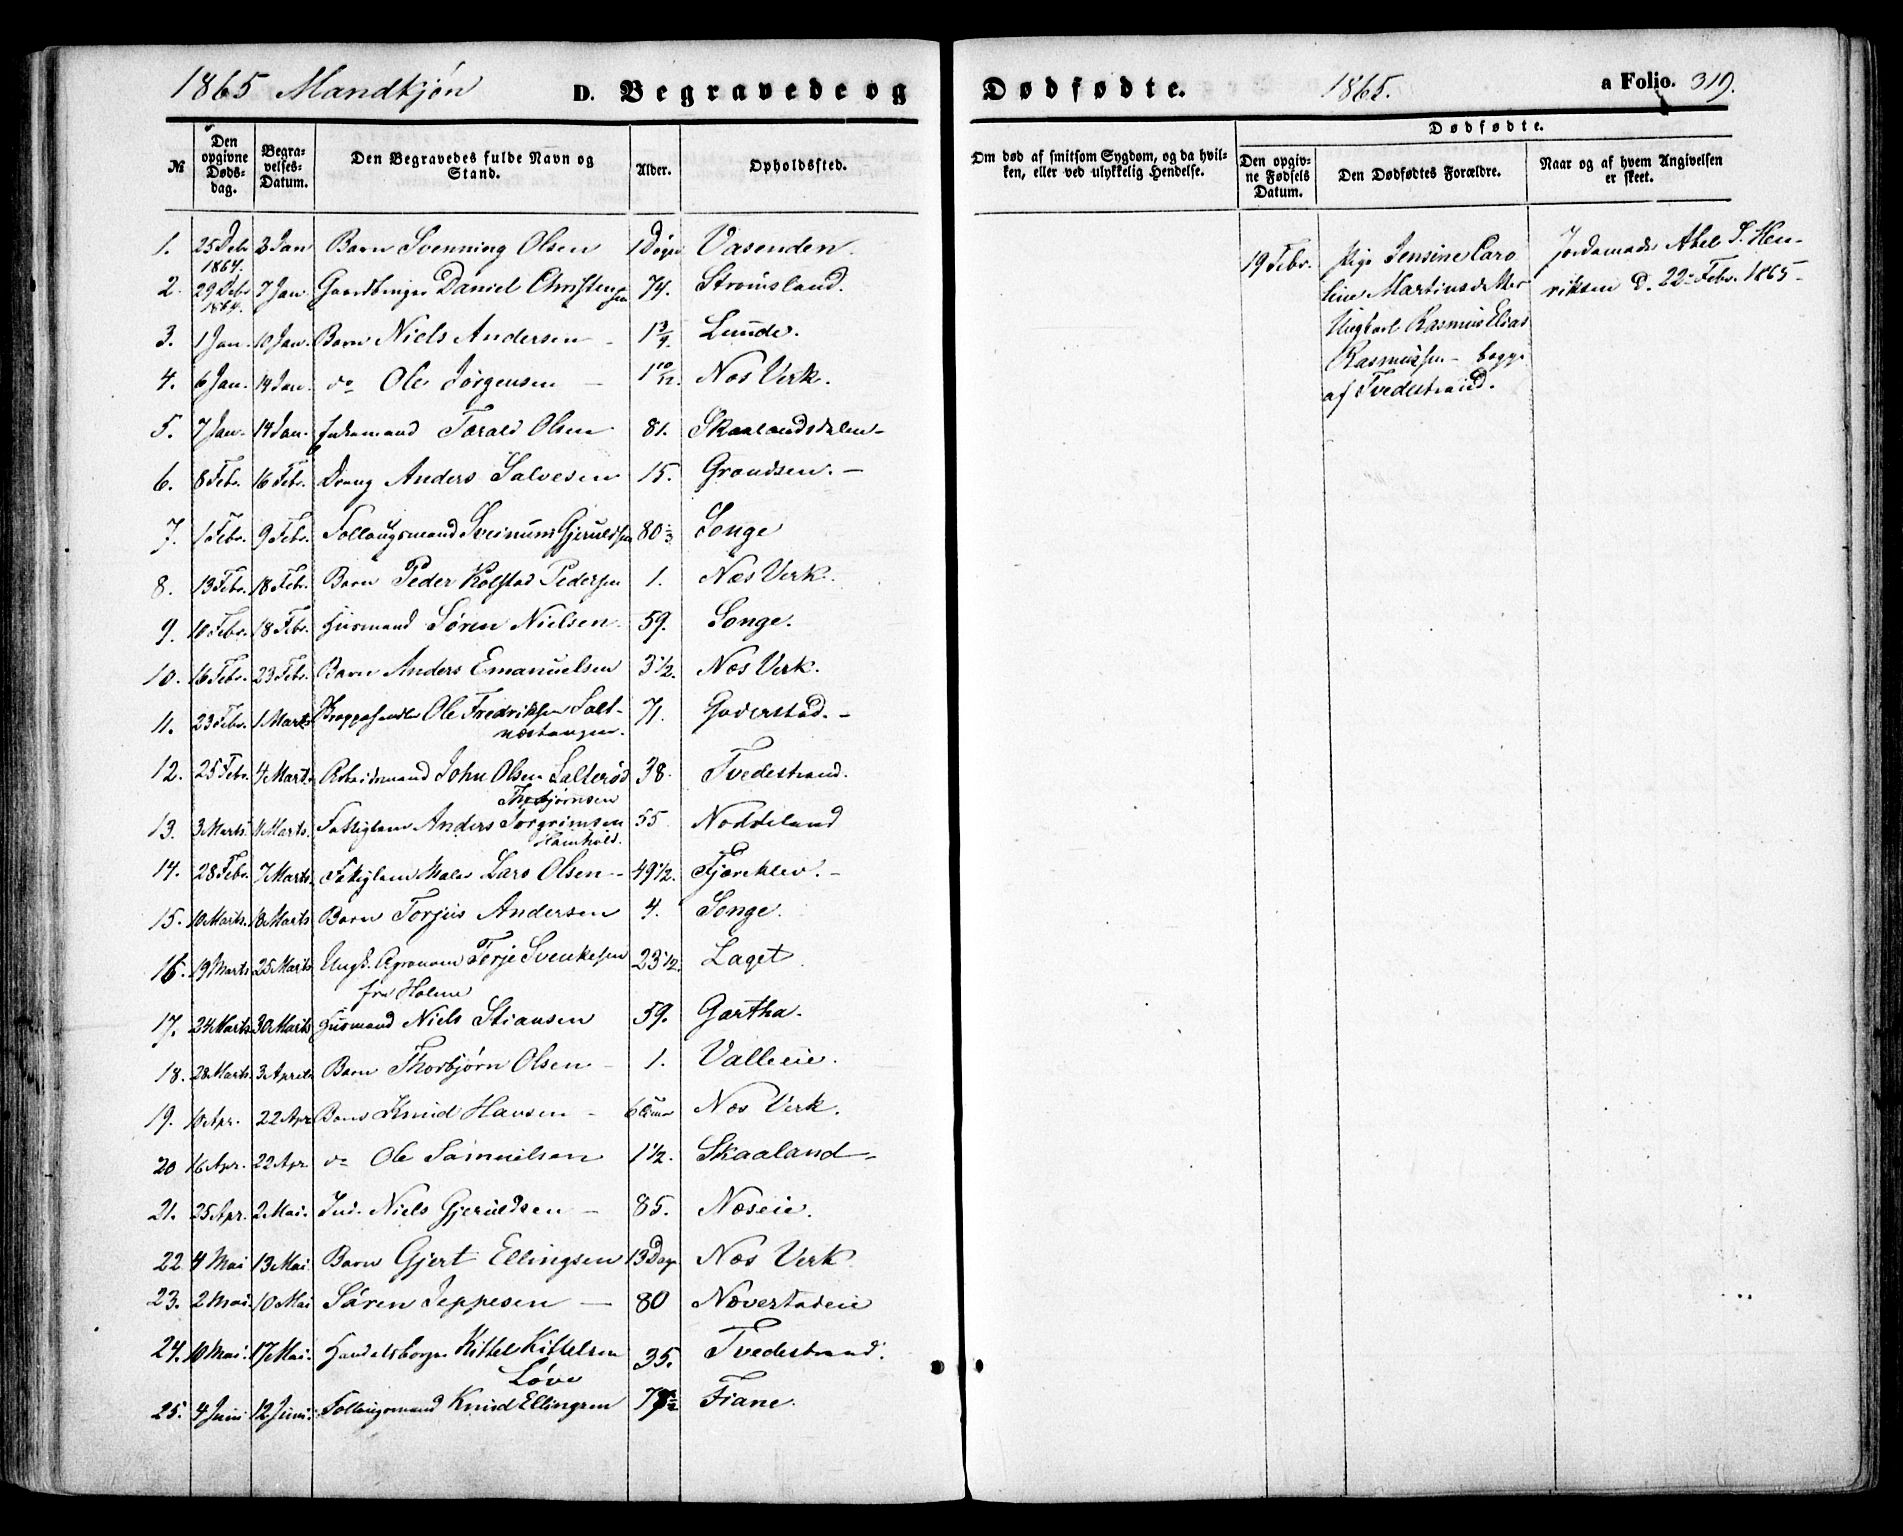 1865 Mandkjøn D. Begravede og Dødfødte. 1865. a Folio. 319.
№ Den opgivne Dødsdag. Begravelses-Datum. Den Begravedes fulde Navn og Stand. Alder. Opholdssted. Om død af smitsom Sygdom, og da hvilken, eller ved ulykkelig Hendelse. Dødfødte. Den opgivne Fødsels Datum. Den Dødfødtes Forældre. Naar og af hvem Angivelsen er skeet.
1. 25 Debr 1864. 2 Jan Barn Svenning Olsen 1 Døgn Vasenden.
2. 29 Debr 1864. 7 Jan Gaardbruger Daniel Christensen 74. Strømsland.
3. 1 Jan. 10 Jan. Barn Niels Andersen - Lunde.
4. 6 Jan. 14 Jan. do Ole Jørgensen - 1 10/12. Nes Verk.
5. 7 Jan. 14 Jan. Tarald Olsen 81. Skaalandsdalen-
6. 8 Febr. 16 Febr. Dreng Anders Salvesen 15. Grandsen. -
7. 1 Febr. 9 Febr. Follaugsmand Sveinum Gjeruldsen 80 Songe
8. 13 Febr. 18 Febr. Barn Peder Kolstad Pedersen 1. Næs Verk.
9. 10 Febr. 18 Febr. Husmand Søren Nielsen 59. Songe.
10. 16 Febr. 23 Febr. Barn Anders Emanuelsen 3 1/2. Nes Verk.
11. 23 Febr. 1 Marts Ole Fredriksen Salt-
næstangen. 71. Goderstad. -
12. 25 Febr. 4 Marts Arbeidsmand John Olsen Salterød 38. Tvedestrand.
Thorbjørnsen
13. 3 Marts 11 Marts. Fattiglem Anders Torgrimsen 55 Noddeland
14. 28 Febr. 7 Marts. Maler Lars Olsen - 49 1/2. Fjæreklev. -
15. 10 Marts. 18 Marts Barn Torjus Andersen 4. Songe.
16. 19 Marts 25 Marts Ungk. Agronom Terje Svenkesen 23 1/2. Laget
fra Holme
17. 24 Marts 30 Marts Husmand Niels Stiansen 59. Gartha.
18. 28 Marts. 3 April Barn Thorbjørn Olsen - 1. Valleeie.
19. 10 Apr. 22 Apr Barn Knud Hansen - Nes Verk.
20 16 Apr. 22 Apr do Ole Samuelsen 1 1/2. Skaaland-
21. 25 Apr. 2 Mai. Ind. Niels Gjeruldsen - 85. Næseie.
22 4 Mai 13 Mai. Barn Gjert Ellingsen 13 Dage Nes Verk
23. 2 Mai. 10 Mai Søren Jeppesen - 80 Næverstadeie
24. 10 Mai. 17 Mai. Handelsborger Kittel Kittelsen
Løve 35. Tvedestrand.
25. 4 Juni 12 Juni. Follaugsmand Knud Ellingsen Fiane.
19 Febr. Pige Jensine Caro
line Martinsdatter
Ungkarl Rasmus Elias
Rasmussen - begge
af Tvedestrand.
Jordemoder Abel S. Hen-
riksen d. 22 Febr. 1865-